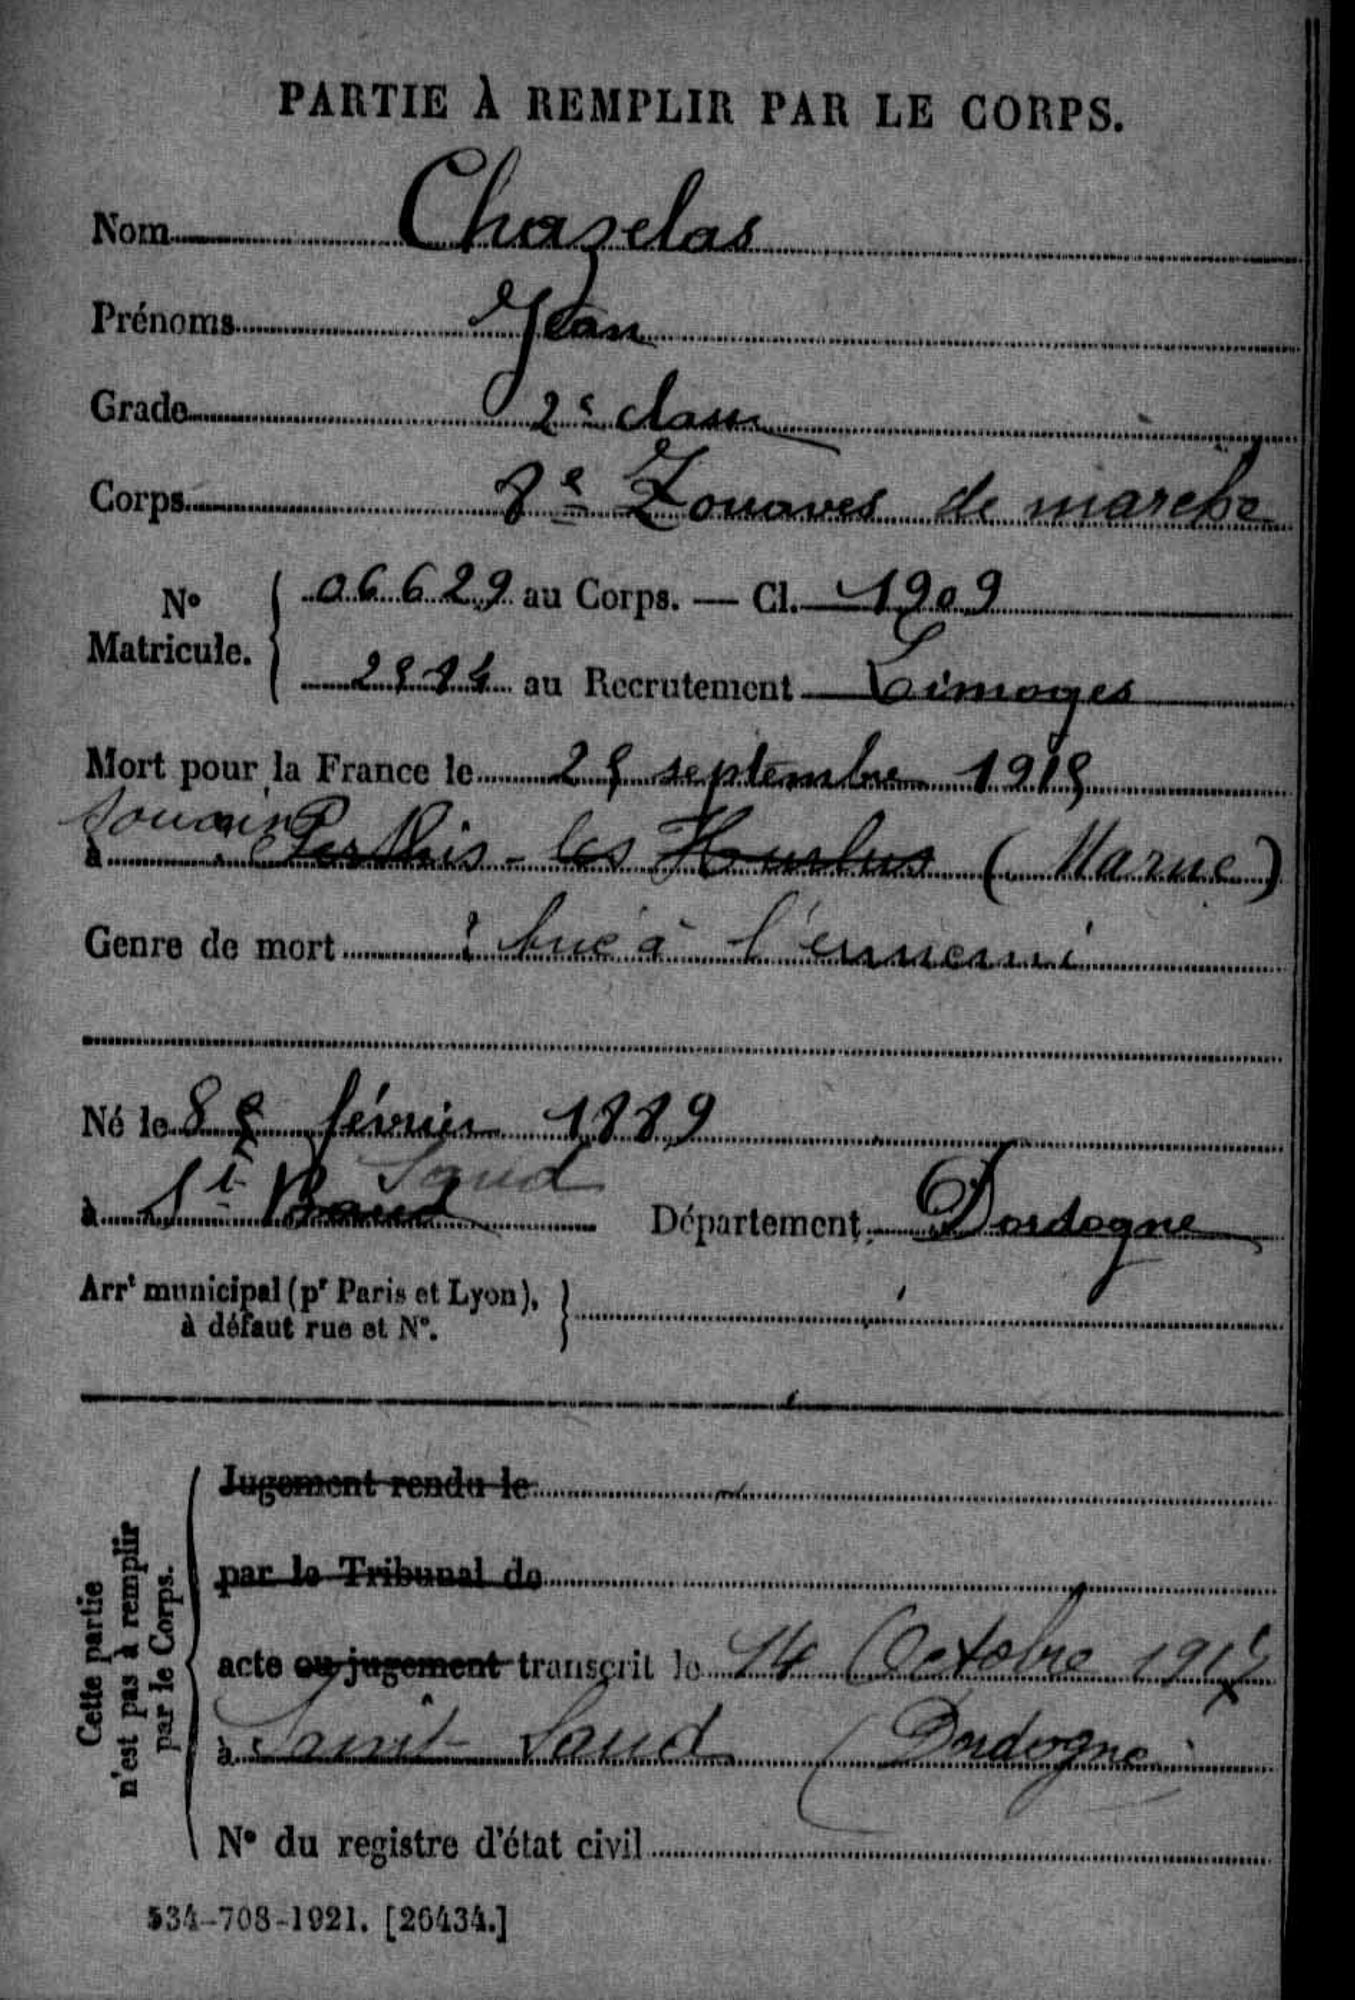 PARTIE À REMPLIR PAR LE CORPS.
Nom Chazelas
Prénoms Jean
Grade 2e classe
Corps 8e Zouaves de marche
No Matricule. { 06629 au Corps. — Cl. 1909
au Recrutement Limoges
Mort pour la France le 25 septembre 1915
Souain
à Perthes-les Hurlus (Marne)
Genre de mort tué à l'ennemi
Né le 8 février 1889
Saud
à St Département Dordogne
Arrt municipal (pr Paris et Lyon), }
à défaut rue et No.
Cette partie
n'est pas à remplir
par le Corps.
Jugement rendu le
par le Tribunal de
acte ou jugement transcrit le 14 Octobre 1915
à Saint Saud (Dordogne
No du registre d'état civil
534-708-1921. [26434.]